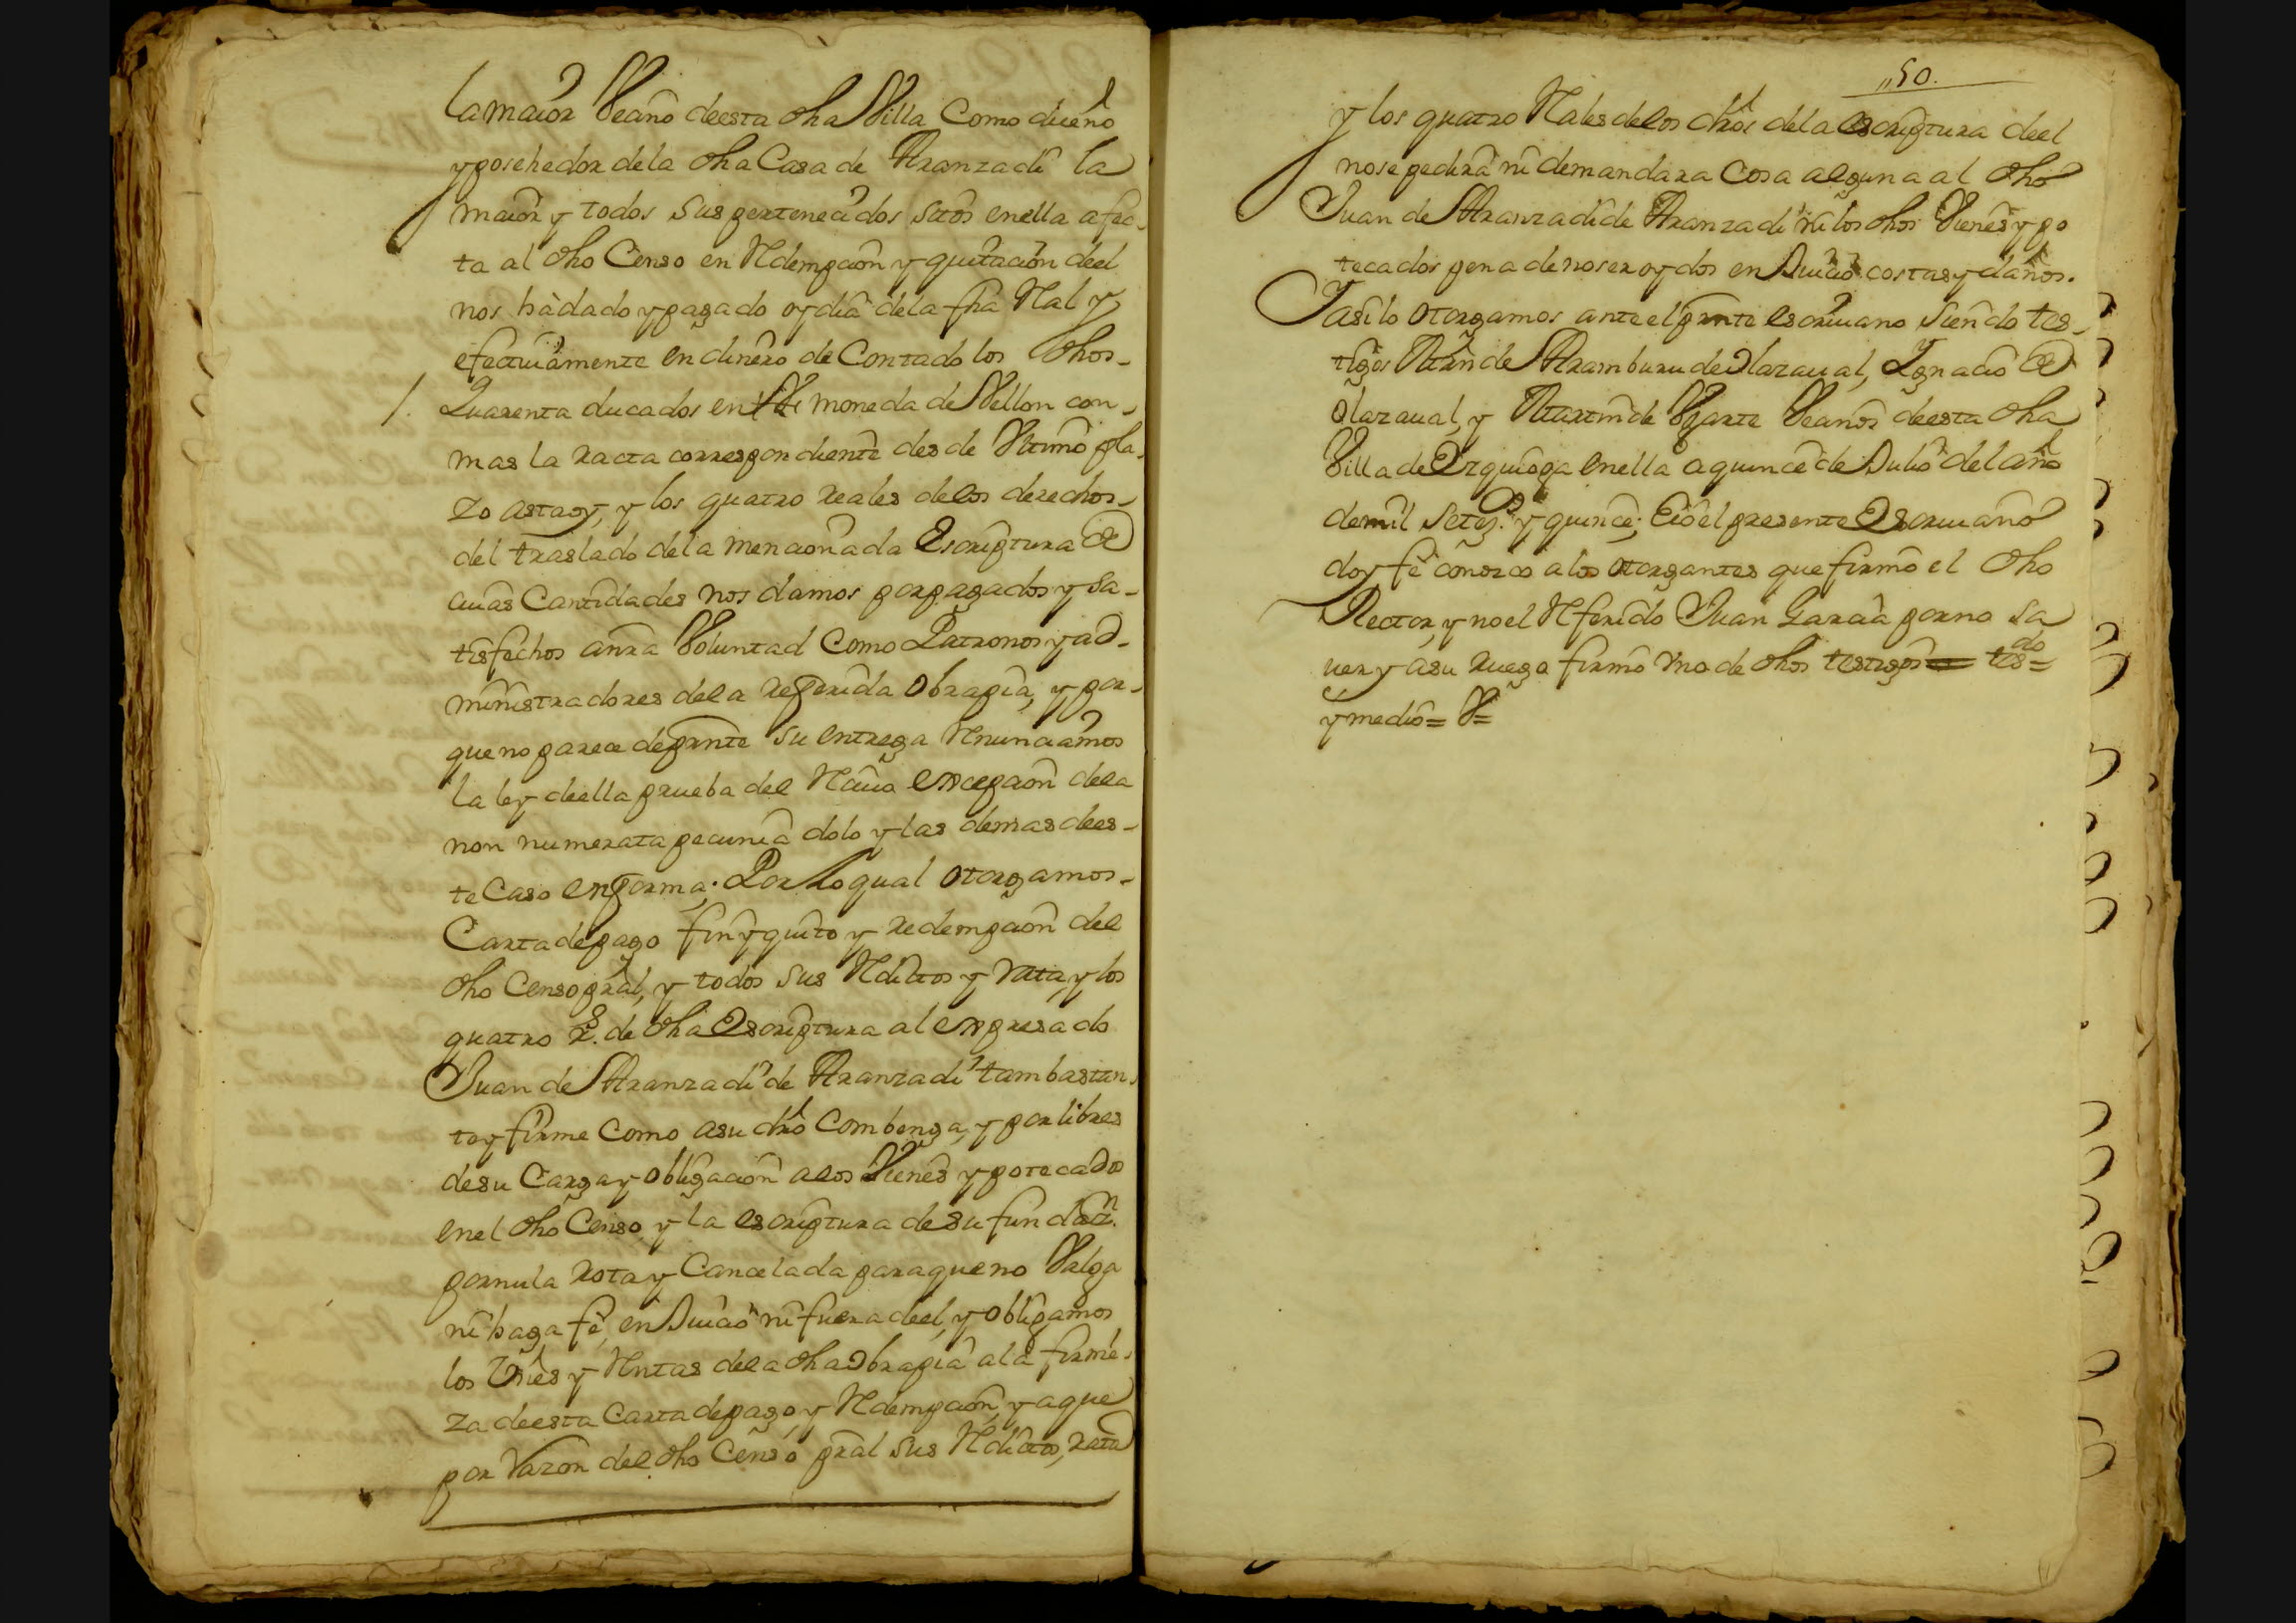 la maior Vecino de esta dha Villa Como dueño
y posehedor de la dha Casa de Aranzadi la
maior y todos sus pertenecidos sitos en ella afec-
ta al dho Censo en Rdempcion y quitacion de el
nos há dado y pagado oy dia de la fha Ral y
efectiuamente en dinero de Contado los dhos-
1. Quarenta ducados en moneda de Vellon con-
mas la racta correspondiente des de Vltimo pla-
zo asta oy, y los quatro reales de los derechos-
del traslado de la mencionada Escriptura de
cuias Cantidades nos damos por pagados y sa-
tisfechos a nra Voluntad Como Patronos y ad-
ministradores de la referida obrapia, y por-
que no parece de prnte su entrega Rnunciamos
la ley de ella prueba del Rciuo excepcion de la
non numerata pecunia dolo y las demas de es-
te Caso en forma; Por lo qual otorgamos-
Carta de pago fin y quito y redempcion del
dho Censo pral, y todos sus Rditos y rata, y los
quatro rs. de dha Escriptura al expresado
Juan de Aranzadi de Aranzadi tam bastan-
te y firme Como a su dro Combenga, y por libres
de su Carga y obligacion a los Vienes ypotecados
en el dho Censo, y la escriptura de su fundaon.
por nula rota y Cancelada para que no Valga
ni haga fe, en Juicio ni fuera de el, y obligamos
los Vnes y Rntas de la dha obrapia a la firme-
za de esta Carta de pago, y Rdempcion, y a que
por Razon del dho Censo pral sus Rditos, rata
50.
y los quatro Rales de los dros de la escriptura de el
no se pedira ni demandara Cosa alguna al dho
Juan de Aranzadi de Aranzadi ni los dhos Vienes ypo
tecados pena de no ser oydos en Juicio costas y daños.
Y asi lo otorgamos ante el prnte escriuano siendo tes-
tigos Mrn de Aramburu de Olazaual, Ygnacio de
Olazaual, y Martin de Vgarte Vecinos de esta dha
Villa de Ezquioga en ella a quince de Julio del año
de mil setez.s y quince; E io el presente Escriuano
doy fe conozco a los otorgantes que firmo el dho
Rector, y no el Rferido Juan Garcia por no sa
uer y a su ruego firmo vno de dhos testigos = tesdo=
y medio= V=